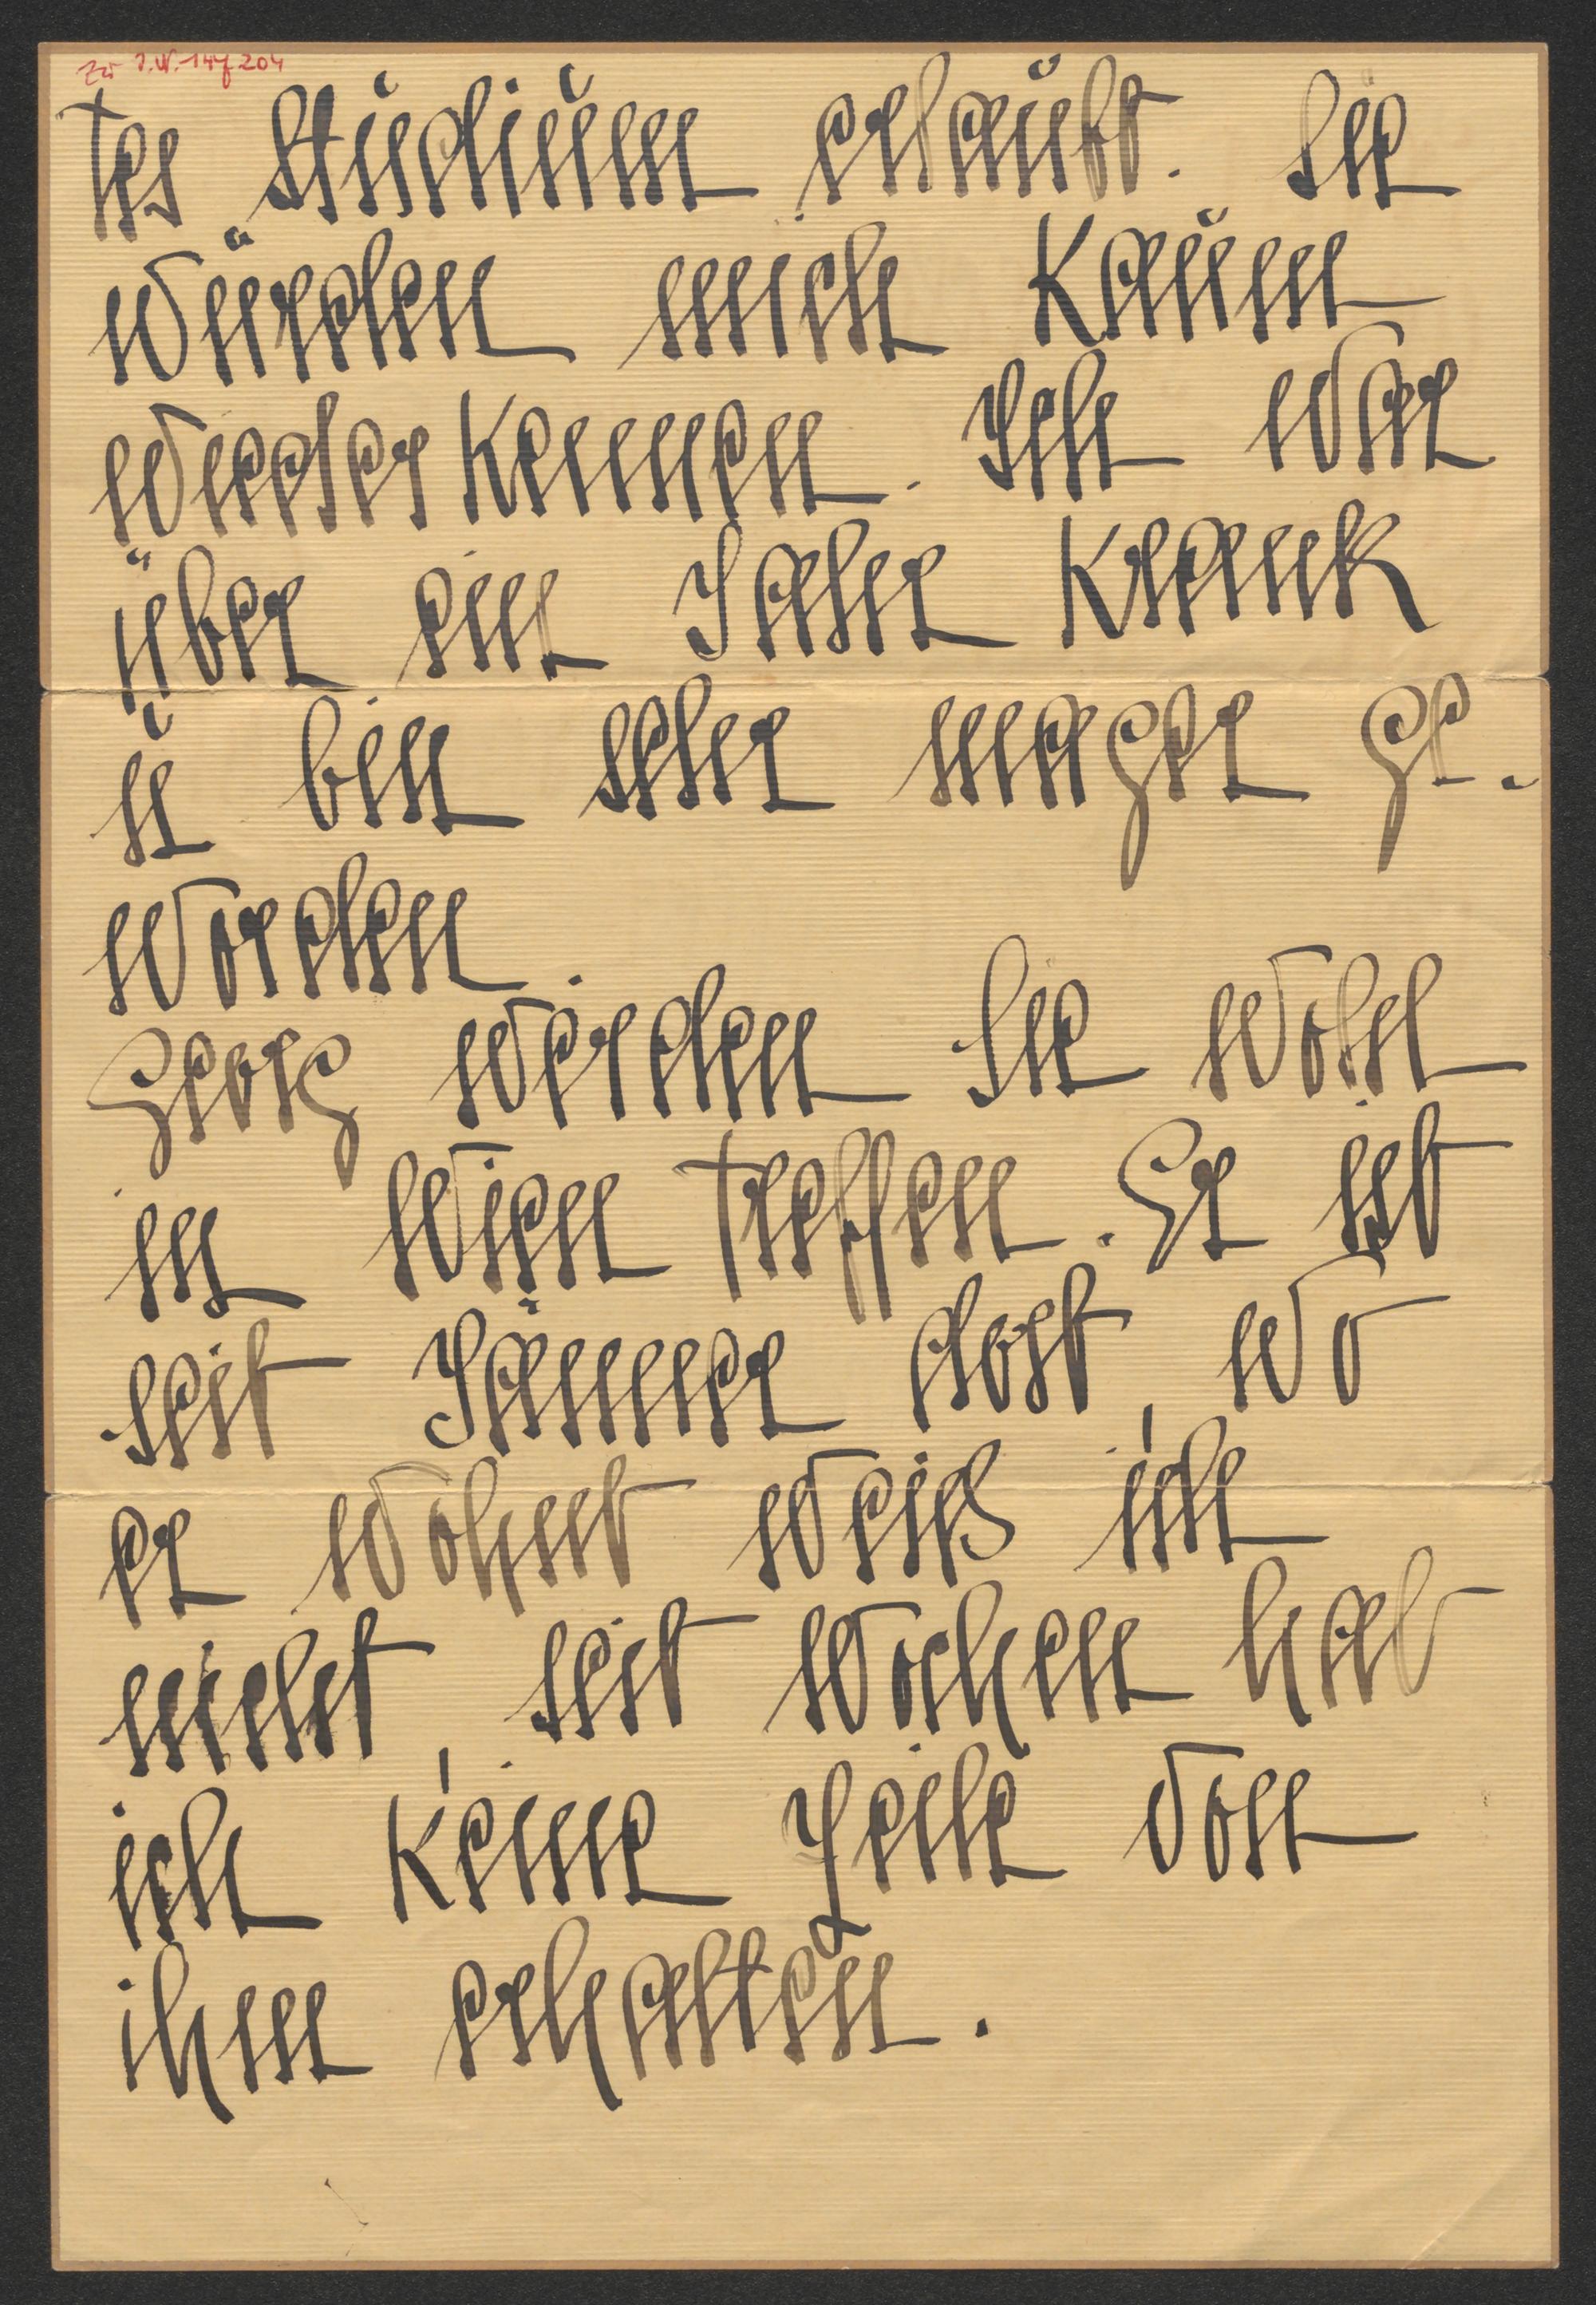 Zu I.N. 147.204
tes Studium erlaubt. Sie
würden mich kaum
wiederkennen. Ich war
über ein Jahr krank
u bin sehr mager ge-
worden.
Georg werden Sie wohl
in Wien treffen. Er ist
seit Jänner dort, wo
er wohnt weiß ich
nicht, seit Wochen hab
ich keine Zeile von
ihm erhalten.